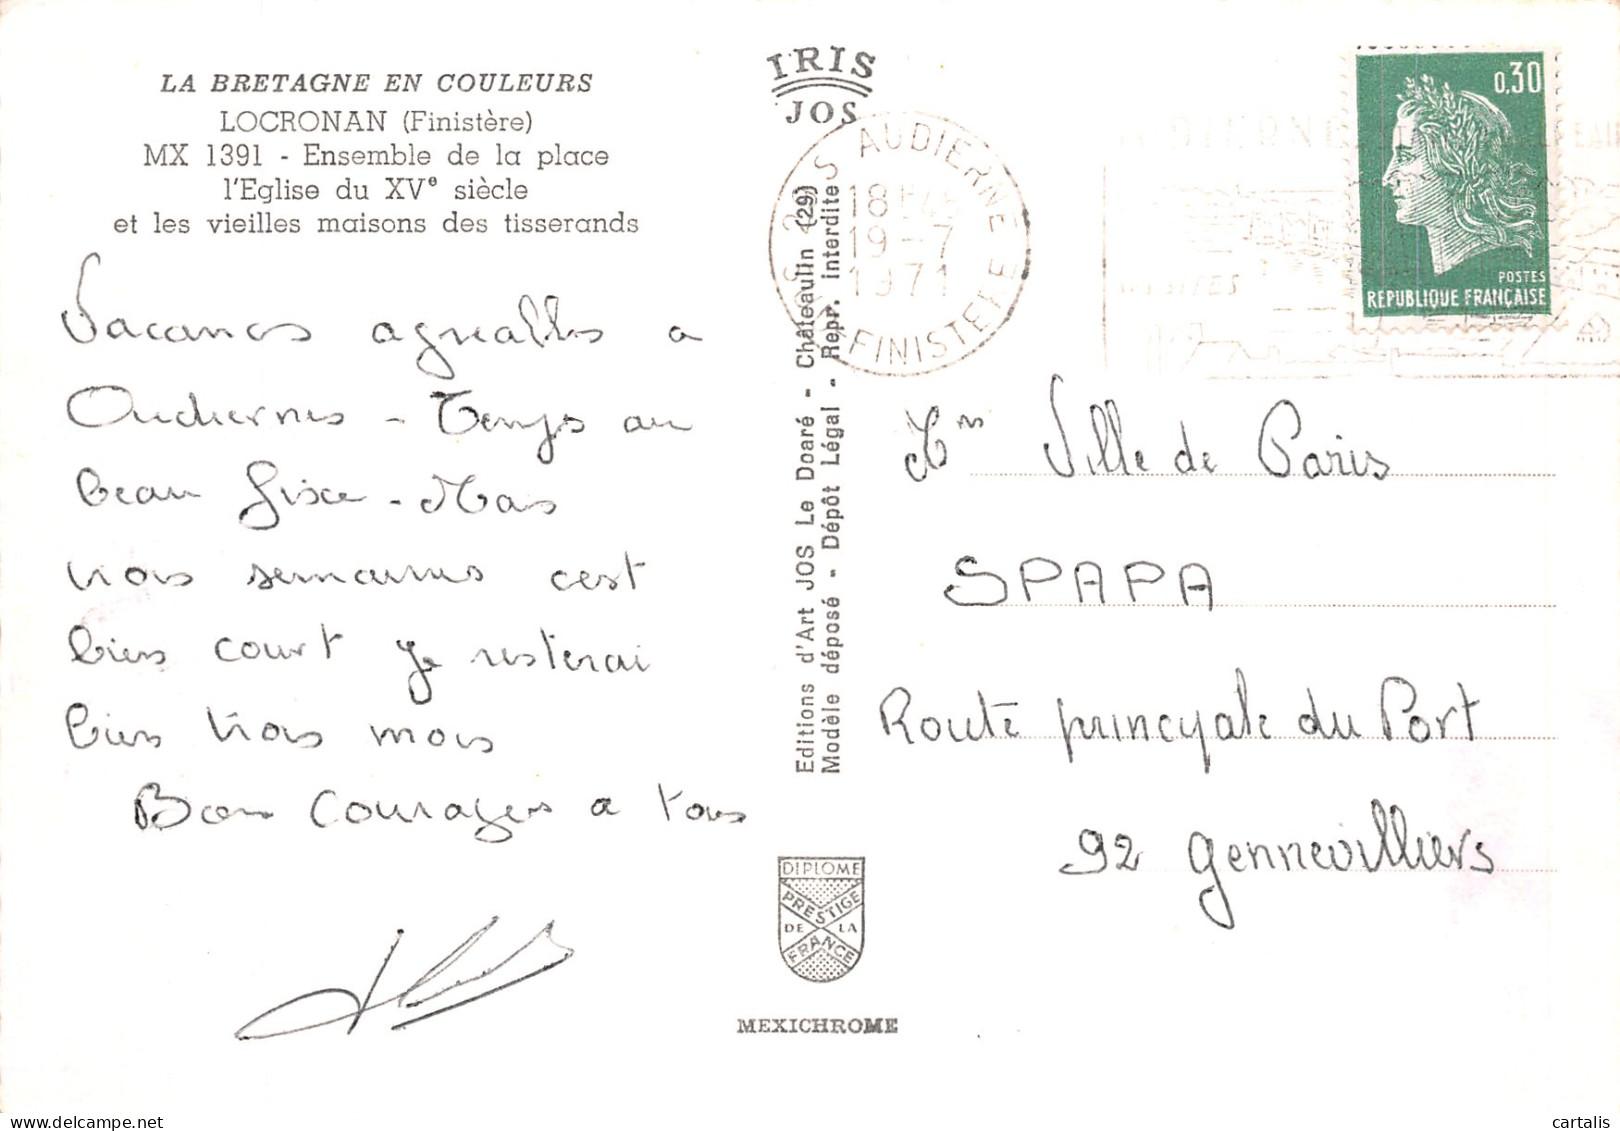 LA BRETAGNE EN COULEURS
LOCRONAN (Finistère)
MX 1391 - Ensemble de la place
l'Eglise du XVe siècle
et les vieilles maisons des tisserands
Vacances agreables a
Oudiernes - Temps au
beau fixe - Mais
trois semaines c'est
bien court je resterai
bien trois mois
Bon Courages a tous
IRIS
JOS
Editions d'Art JOS Le Doaré - Châteaulin (29)
Modèle déposé - Dépôt Légal - Repr. interdite
DIPLOME
PRESTIGE
DE LA
FRANCE
MEXICHROME
AUDIERNE
18H45
19-7
1971
FINISTERE
0,30
POSTES
REPUBLIQUE FRANÇAISE
Ville de Paris
SPAPA
Route principale du Port
92 Gennevilliers
cartalis